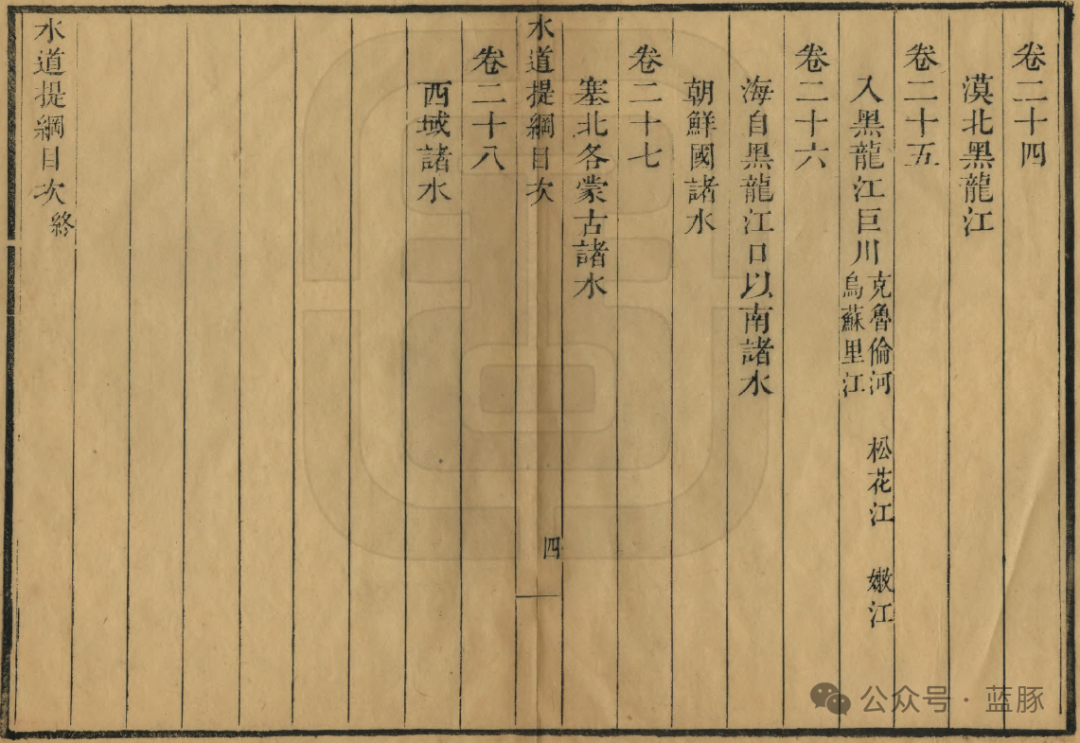 卷二十四
漠北黑龍江
卷二十五
入黑龍江巨川克魯倫河 松花江 嫩江
烏蘇里江
卷二十六
海自黑龍江口以南諸水
朝鮮國諸水
卷二十七
塞北各蒙古諸水
水道提綱目次
四
卷二十八
西域諸水
水道提綱目次終
公众号·蓝豚